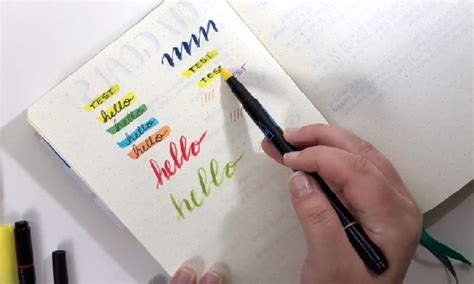 TEST
hello
hello
hello
hello
TEST
TEST
hello
hello